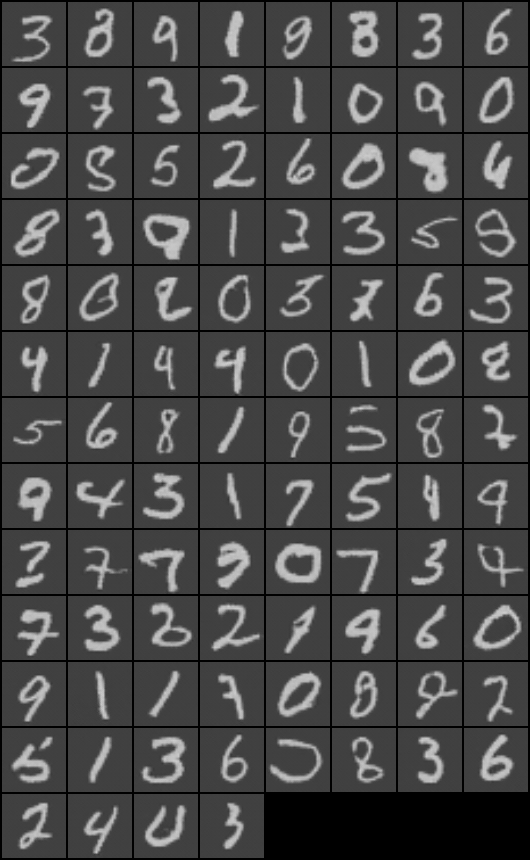 3 8 9 1 9 8 3 6
9 7 3 2 1 0 9 0
0 8 5 2 6 0 8 6
8 3 0 1 3 3 5 8
8 0 2 0 3 7 6 3
4 1 4 4 0 1 0 8
5 6 8 1 9 5 8 2
9 4 3 1 7 5 4 9
3 7 7 9 0 7 3 4
7 3 2 2 1 9 6 0
9 1 1 7 0 8 8 2
5 1 3 6 8 3 6
2 4 0 3